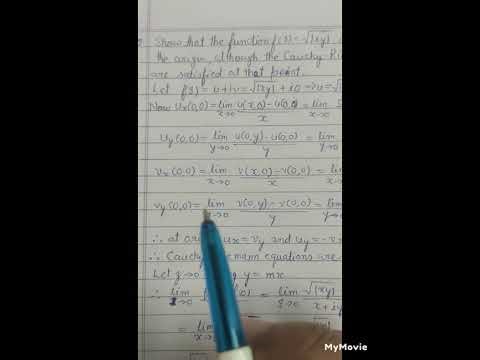 Show that the function f(z) = √|xy|
the origin, although the Cauchy Ri
are satisfied at that point.
Let f(z) = u+iv = √|xy| + i0 ⇒ u = √
Now ux(0,0) = lim x→0 u(x,0) - u(0,0) / x = lim x→0
uy(0,0) = lim y→0 u(0,y) - u(0,0) / y = lim y→0
vx(0,0) = lim x→0 v(x,0) - v(0,0) / x = lim
vy(0,0) = lim v(0,y) - v(0,0) / y = lim y→0
∴ at ux = vy and uy = -v
∴ Cauchy mann equations are
Let z→0 y = mx
∴ lim z→0 = lim z→0 √|xy| / x + iy
= lim x→0
MyMovie